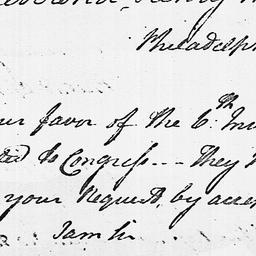 Philadelph
ur favor of the 6th. Ins
ted to Congress -- They h
your Request, by acce
I am Sir